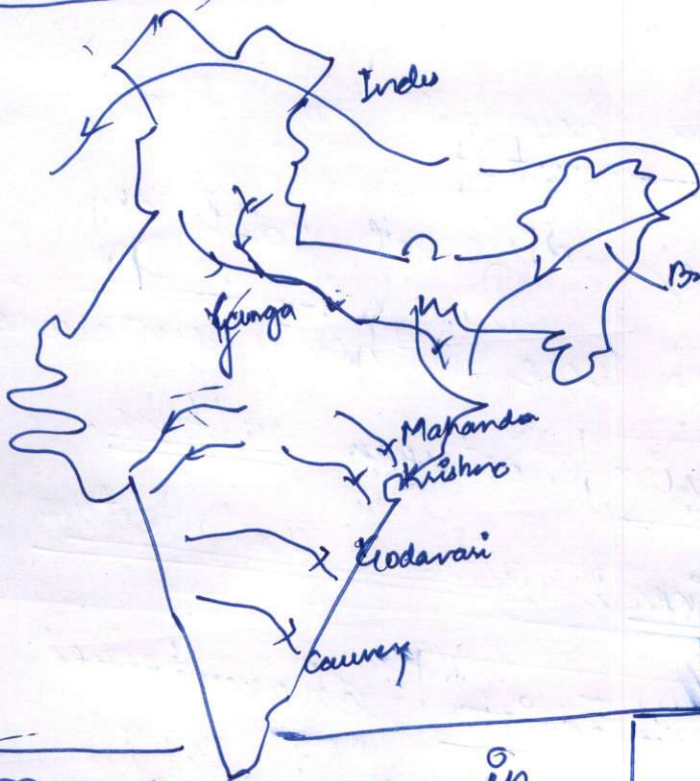 Indus
Ganga
Mahanda
Krishna
Godavari
Cauvery